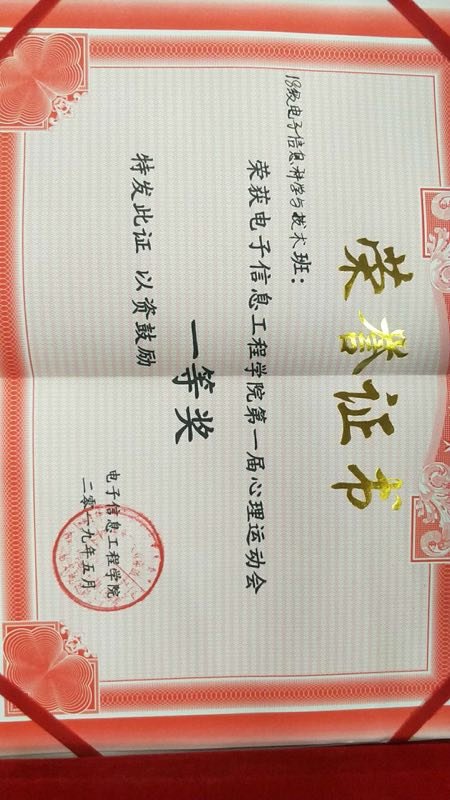 荣誉证书
18级电子信息科学与技术班：
荣获电子信息工程学院第一届心理运动会
一等奖
特发此证 以资鼓励
电子信息工程学院
二零一九年五月